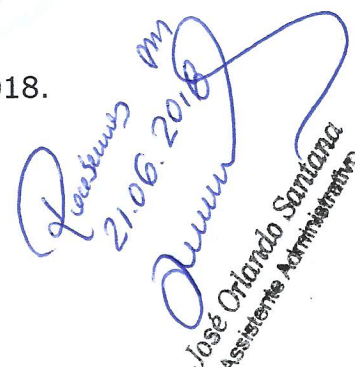 018.
Recebemos em
21.06.2018
José Orlando Santana
Assistente Administrativo